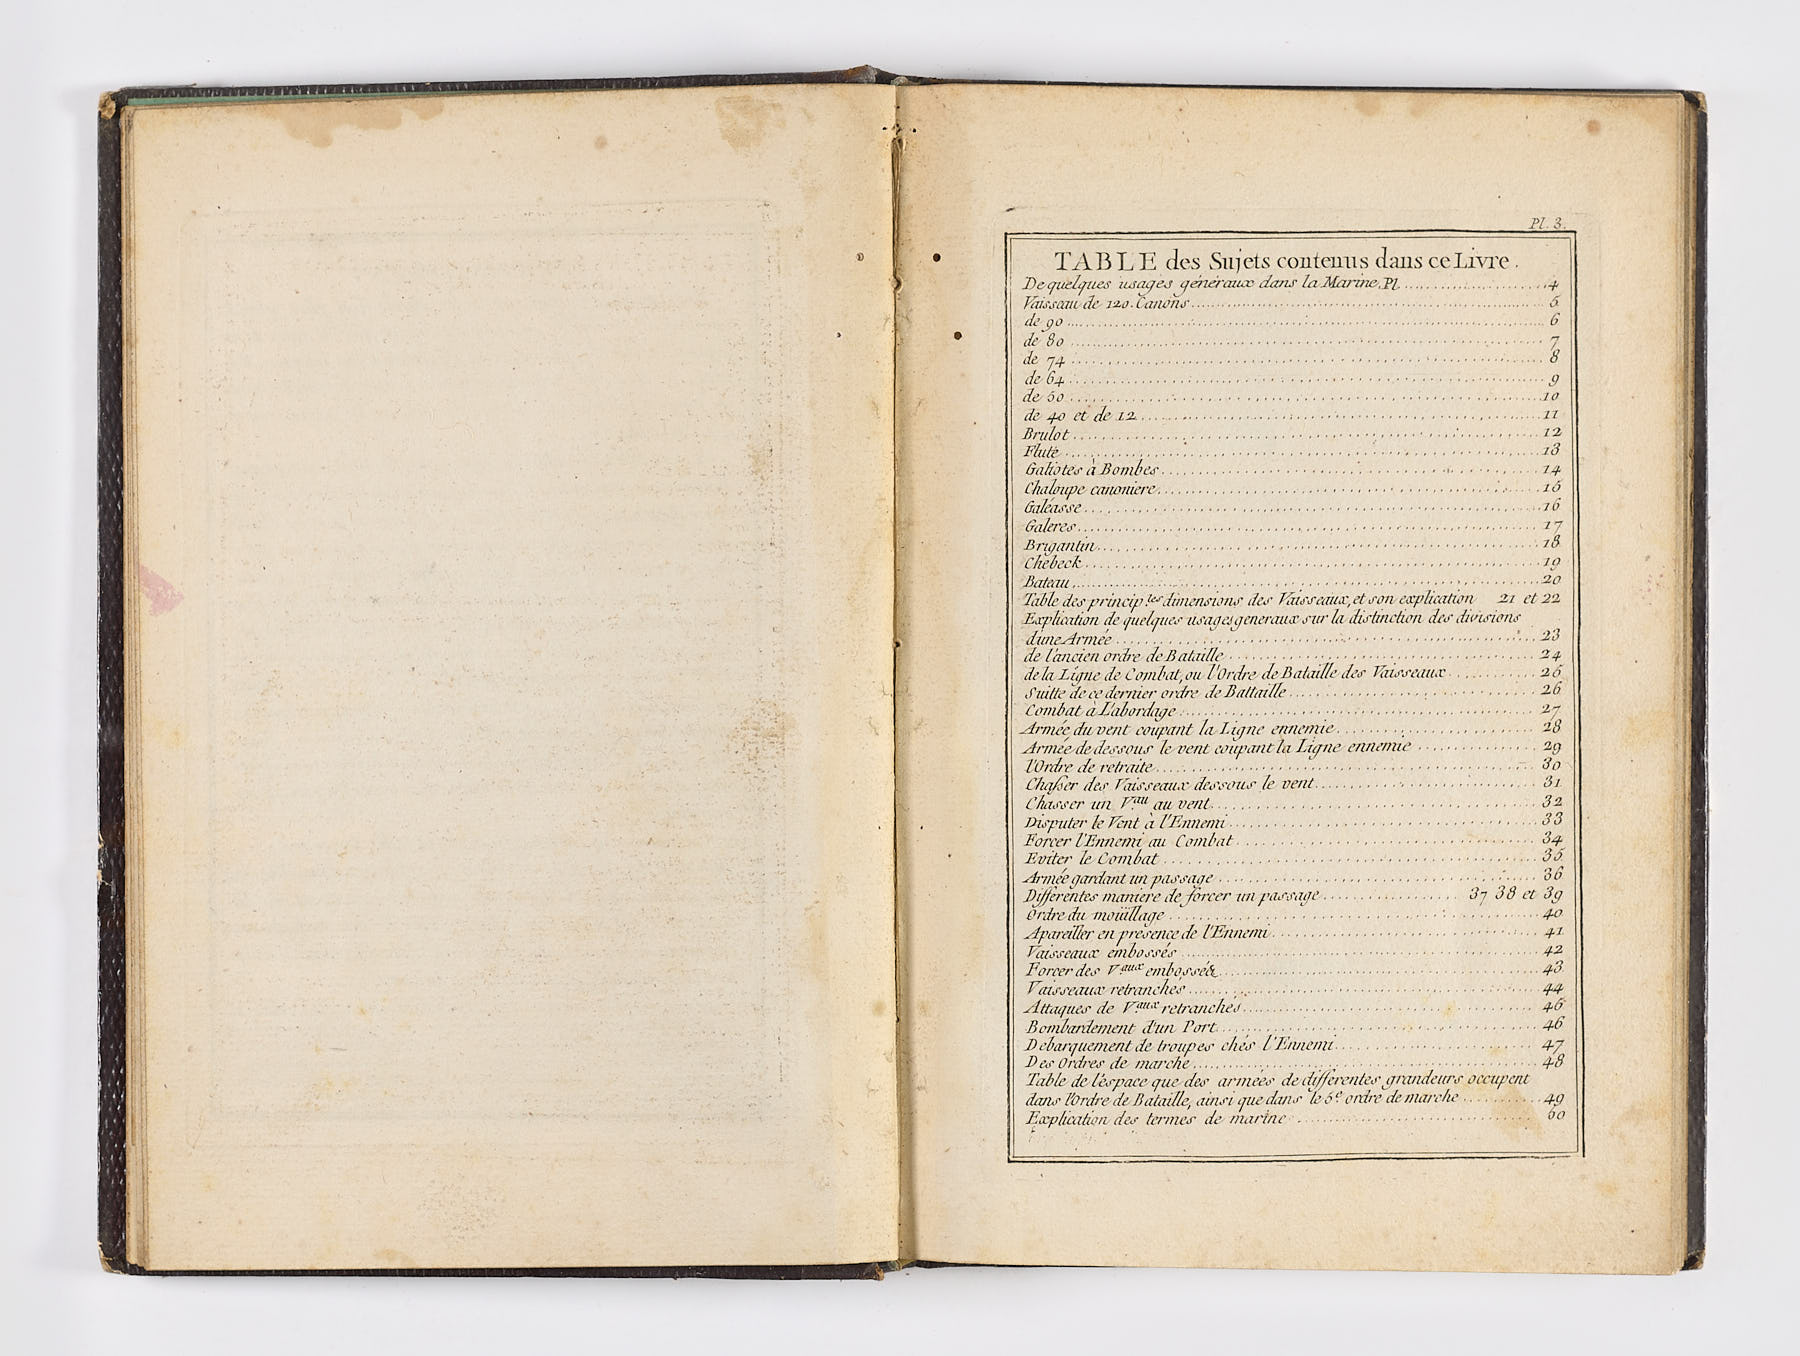 Pl. 3.
TABLE des Sujets contenus dans ce Livre.
De quelques usages généraux dans la Marine, Pl. 4
Vaisseau de 120. Canons 5
de 90 6
de 80 7
de 74 8
de 64 9
de 50 10
de 40 et de 12 11
Brulot 12
Flute 13
Galiotes à Bombes 14
Chaloupe canoniere 15
Galéasse 16
Galeres 17
Brigantin 18
Chebeck 19
Bateau 20
Table des princip.les dimensions des Vaisseaux, et son explication 21 et 22
Explication de quelques usages generaux sur la distinction des divisions
d'une Armée 23
de l'ancien ordre de Bataille 24
de la Ligne de Combat, ou l'Ordre de Bataille des Vaisseaux 25
Suitte de ce dernier ordre de Battaille 26
Combat à L'abordage 27
Armée du vent coupant la Ligne ennemie 28
Armée de dessous le vent coupant la Ligne ennemie 29
l'Ordre de retraite 30
Chasser des Vaisseaux dessous le vent 31
Chasser un Vau au vent 32
Disputer le Vent à l'Ennemi 33
Forcer l'Ennemi au Combat 34
Eviter le Combat 35
Armée gardant un passage 36
Differentes maniere de forcer un passage 37 38 et 39
Ordre du moüillage 40
Apareiller en presence de l'Ennemi 41
Vaisseaux embossés 42
Forcer des Vaux embossés 43
Vaisseaux retranchés 44
Attaques de V.aux retranchés 45
Bombardement d'un Port 46
Debarquement de troupes chés l'Ennemi 47
Des Ordres de marche 48
Table de l'espace que des armées de differentes grandeurs occupent
dans l'Ordre de Bataille, ainsi que dans le 5e ordre de marche 49
Explication des termes de marine 50